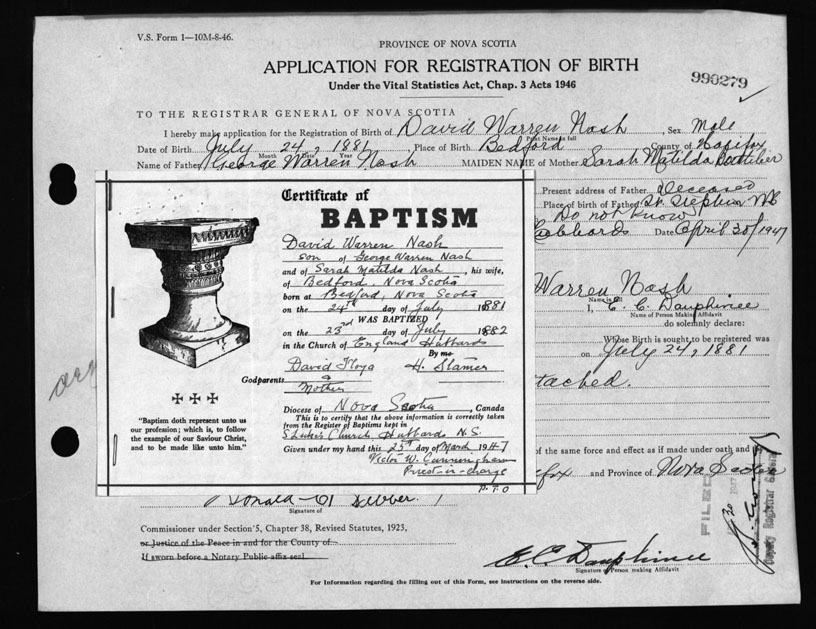 V.S. Form 1—10M-8-46.
PROVINCE OF NOVA SCOTIA
APPLICATION FOR REGISTRATION OF BIRTH
Under the Vital Statistics Act, Chap. 3 Acts 1946
990279
TO THE REGISTRAR GENERAL OF NOVA SCOTIA
I hereby make application for the Registration of Birth of David Warren Nash , Sex Male
Print Name in full
Date of Birth July 24, 1881 , Place of Birth Bedford County of Halifax
Month Date Year
Name of Father George Warren Nash MAIDEN NAME of Mother Sarah Matilda Boutilier
Present address of Father Deceased
Place of birth of Father St. Stephen NB
Do not know
Hubbards Date April 30/1947
Warren Nash
Name in full
I, E. C. Dauphinee
Name of Person Making Affidavit
do solemnly declare:
Whose Birth is sought to be registered was
on July 24, 1881
tached.
of the same force and effect as if made under oath and
fox and Province of Nova Scotia
Certificate of
BAPTISM
David Warren Nash
son of George Warren Nash
and of Sarah Matilda Nash , his wife,
of Bedford, Nova Scotia
born at Bedford, Nova Scotia
on the 24th day of July 1881
WAS BAPTIZED
on the 23rd day of July 1882
in the Church of England Hubbards
By me
David H. Stamer
Godparents &
Mother
Diocese of Nova Scotia , Canada
This is to certify that the above information is correctly taken
from the Register of Baptisms kept in
St Luke's Church, Hubbards N.S.
Given under my hand this 25th day of March 1947
Victor W. Cunningham
Priest-in-charge
P.T.O
"Baptism doth represent unto us
our profession; which is, to follow
the example of our Saviour Christ,
and to be made like unto him."
Donald
Signature of
Commissioner under Section 5, Chapter 38, Revised Statutes, 1923,
or Justice of the Peace in and for the County of
If sworn before a Notary Public affix seal
E. C. Dauphinee
Signature of Person making Affidavit
For Information regarding the filling out of this Form, see instructions on the reverse side.
FILED
Deputy Registrar General